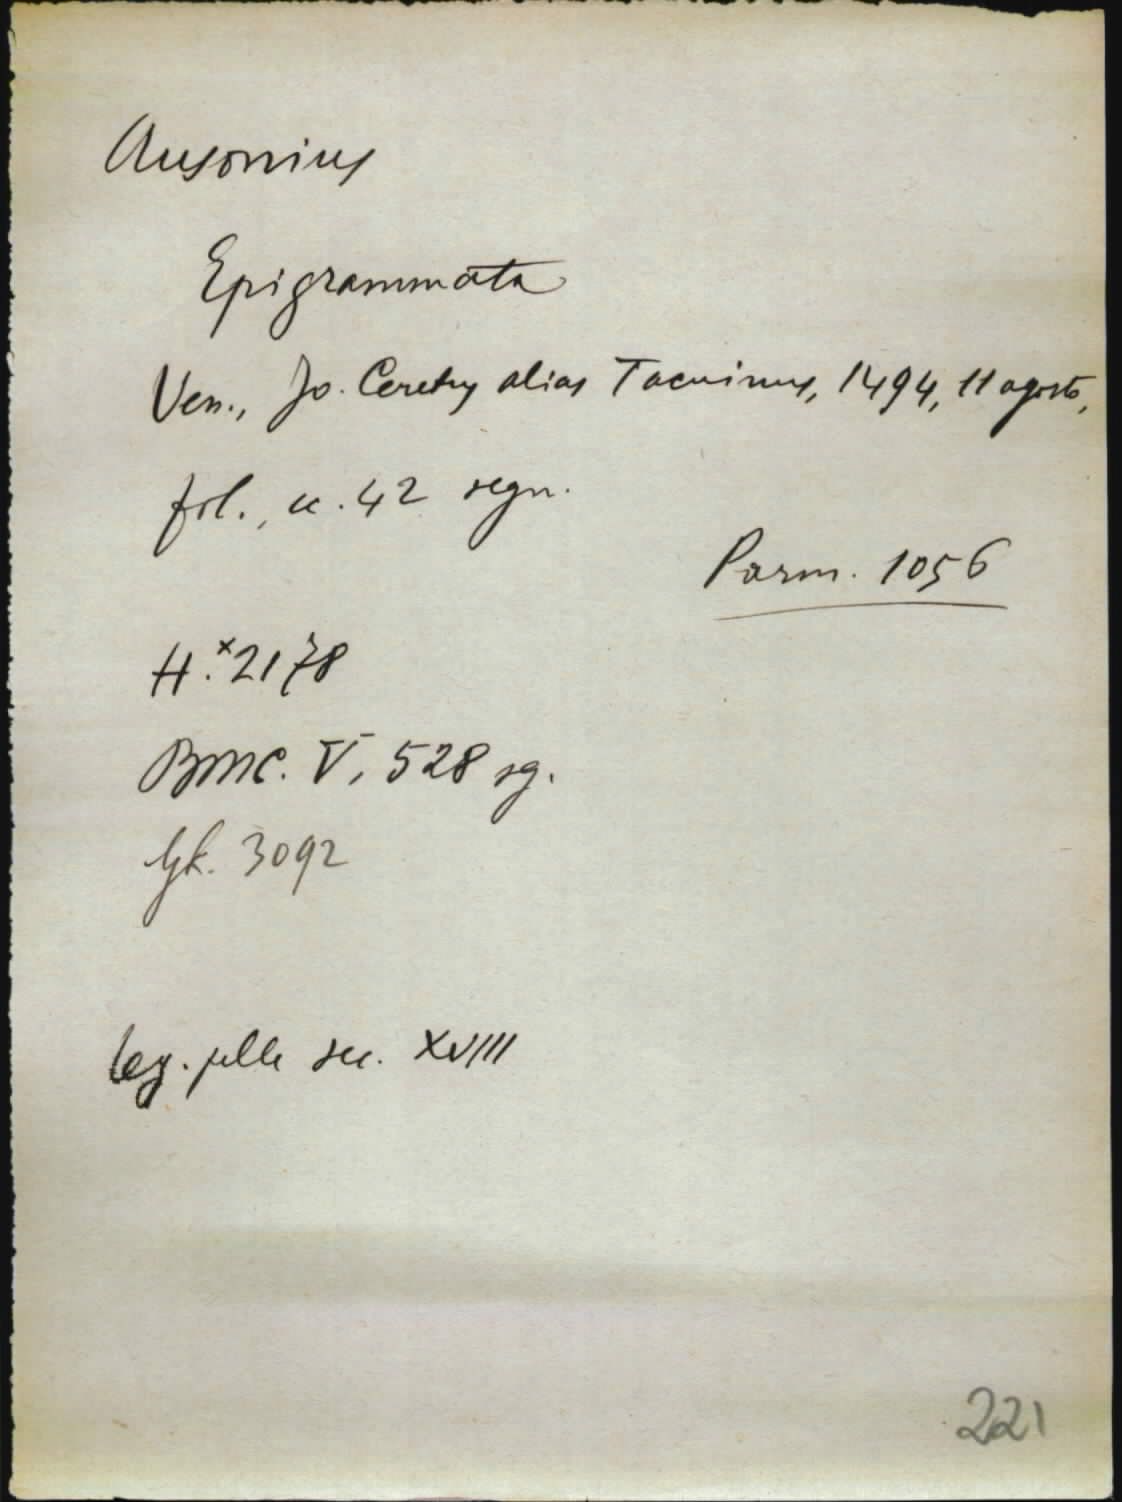 Ausonius
Epigrammata
Ven., Jo. Ceretus alias Tacuinus, 1494, 11 agosto,
fol., cc. 42 segn.
Parm. 1056
H.ˣ2178
BMC. V, 528 sg.
Gk. 3092
leg. pelle sec. XVIII
221